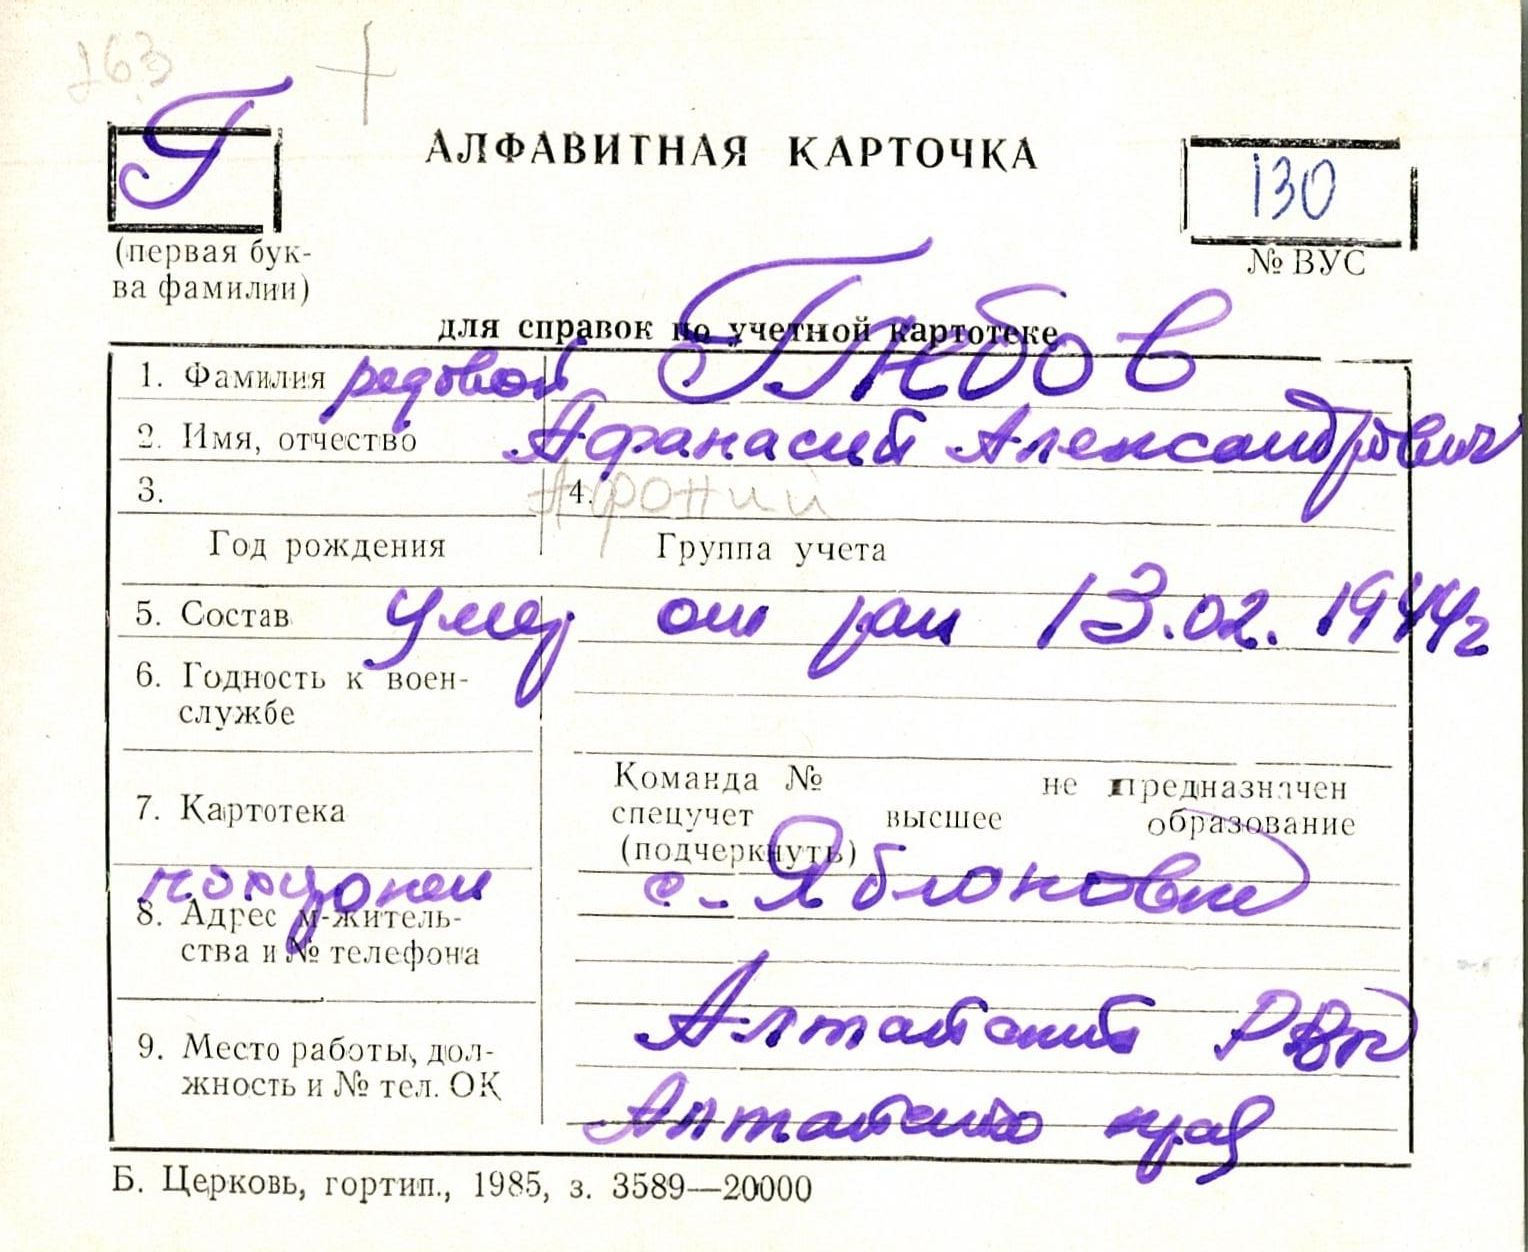 163
Г
АЛФАВИТНАЯ КАРТОЧКА
130
(первая бук-
ва фамилии)
№ ВУС
для справок по учетной картотеке
1. Фамилия рядовой Глебов
2. Имя, отчество Афанасий Александрович
3. 4. Афоний
Год рождения Группа учета
5. Состав умер от ран 13.02.1944г
6. Годность к воен-
службе
7. Картотека
Команда № не предназначен
спецучет высшее образование
(подчеркнуть)
похоронен с. Яблоновка
8. Адрес м-житель-
ства и № телефона
Алтайский РВК
9. Место работы, дол-
жность и № тел. ОК
Алтайского края
Б. Церковь, гортип., 1985, з. 3589—20000